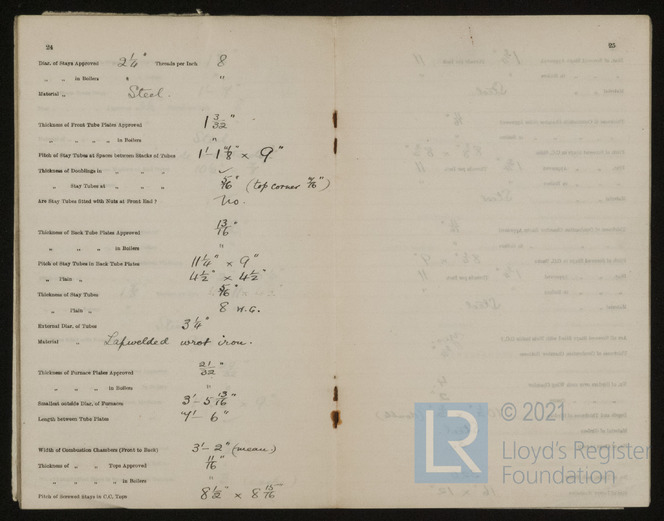 24
Diar. of Stays Approved 2 1/4" Threads per Inch 8
„ „ in Boilers " "
Material „ Steel.
Thickness of Front Tube Plates Approved 1 3/32"
„ „ „ „ in Boilers "
Pitch of Stay Tubes at Spaces between Stacks of Tubes 9"
Thickness of Doublings in „ „ „ „ ✓
„ Stay Tubes at „ „ „ 5/16" (top corner
Are Stay Tubes fitted with Nuts at Front End? No.
Thickness of Back Tube Plates Approved 13/16"
„ „ „ „ in Boilers "
Pitch of Stay Tubes in Back Tube Plates 11 1/4" x 9"
„ Plain „ 4 1/2" x 4 1/2"
Thickness of Stay Tubes 5/16"
„ Plain „ 8 W.G.
External Diar. of Tubes 3 1/4"
Material „ Lapwelded wrot iron.
Thickness of Furnace Plates Approved 21/32"
„ „ „ in Boilers "
Smallest outside Diar. of Furnaces 3'-5 13/16"
Length between Tube Plates 7'-6"
Width of Combustion Chambers (Front to Back) 3'-2" (mean)
Thickness of „ „ Tops Approved 11/16"
„ „ „ „ in Boilers "
Pitch of Screwed Stays in C.C. Tops 8 1/2" x 8 15/16"
25
LR © 2021
Lloyd's Register
Foundation